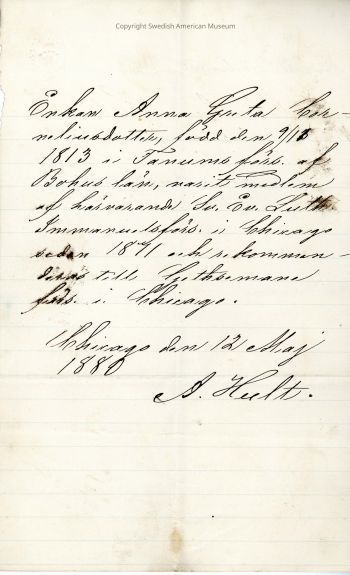 Copyright Swedish American Museum
Enkan Anna Greta Cor-
neliusdotter, född den 9/10
1813 i Tanums förs. af
Bohus län, varit medlem
af härvarande Sv. Ev. Luth.
Immanuelsförs. i Chicago
sedan 1871 och rekommen-
deras till Gethsemane
förs. i Chicago.
Chicago den 12 Maj
1880
A. Hult.